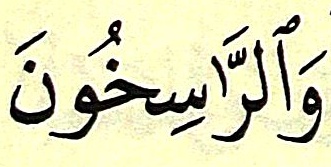 وَٱلرَّٰسِخُونَ